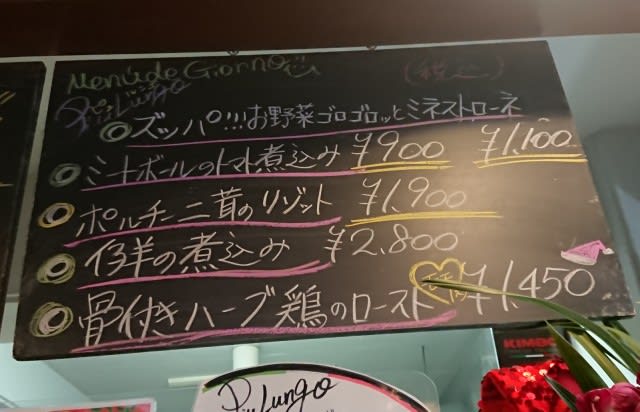 Menú de Giorno
(税込)
Più Lungo
ズッパ!!!お野菜ゴロゴロッとミネストローネ
¥1,100
ミートボールのトマト煮込み ¥900
ポルチーニ茸のリゾット ¥1,900
仔羊の煮込み ¥2,800
骨付きハーブ鶏のロースト ¥1,450
Più Lungo
KIMBO